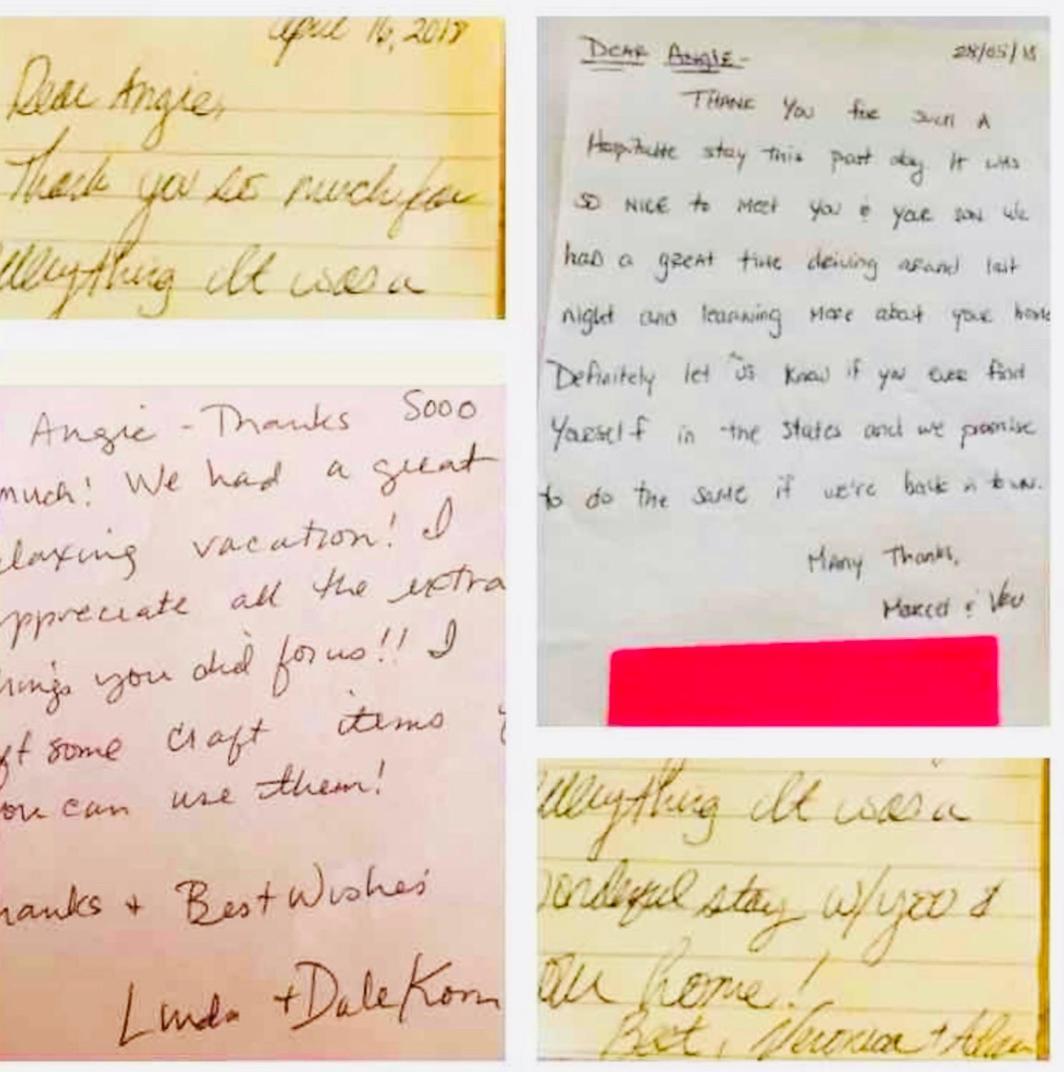 April 16, 2018
Dear Angie,
Thank you so much for
everything It was a
Angie - Thanks Sooo
much! We had a great
elaxing vacation! I
appreciate all the extra
hings you did for us!! I
ft some craft items
ou can use them!
hanks + Best Wishes
Linda + Dale Korn
DEAR ANGIE-
28/05/18
THANK YOU for such A
Hospitable stay this past day It was
SO NICE to Meet you & your son We
had a great time driving around last
night and learning More about your home
Definitely let us know if you ever find
Yourself in the states and we promise
to do the same if we're back in town.
Many Thanks,
Marcel & Vev
everything It was a
onderful stay w/you &
our home!
Best, Veronica + Adam